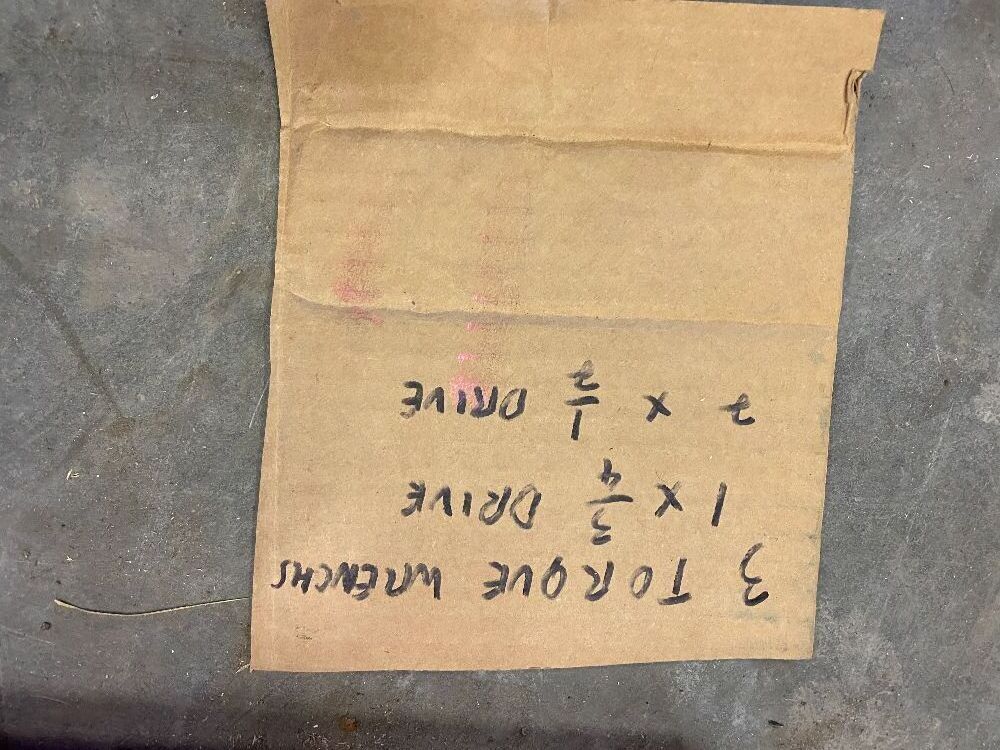 3 TORQUE WRENCHS
1 x 3/4 DRIVE
2 x 1/2 DRIVE